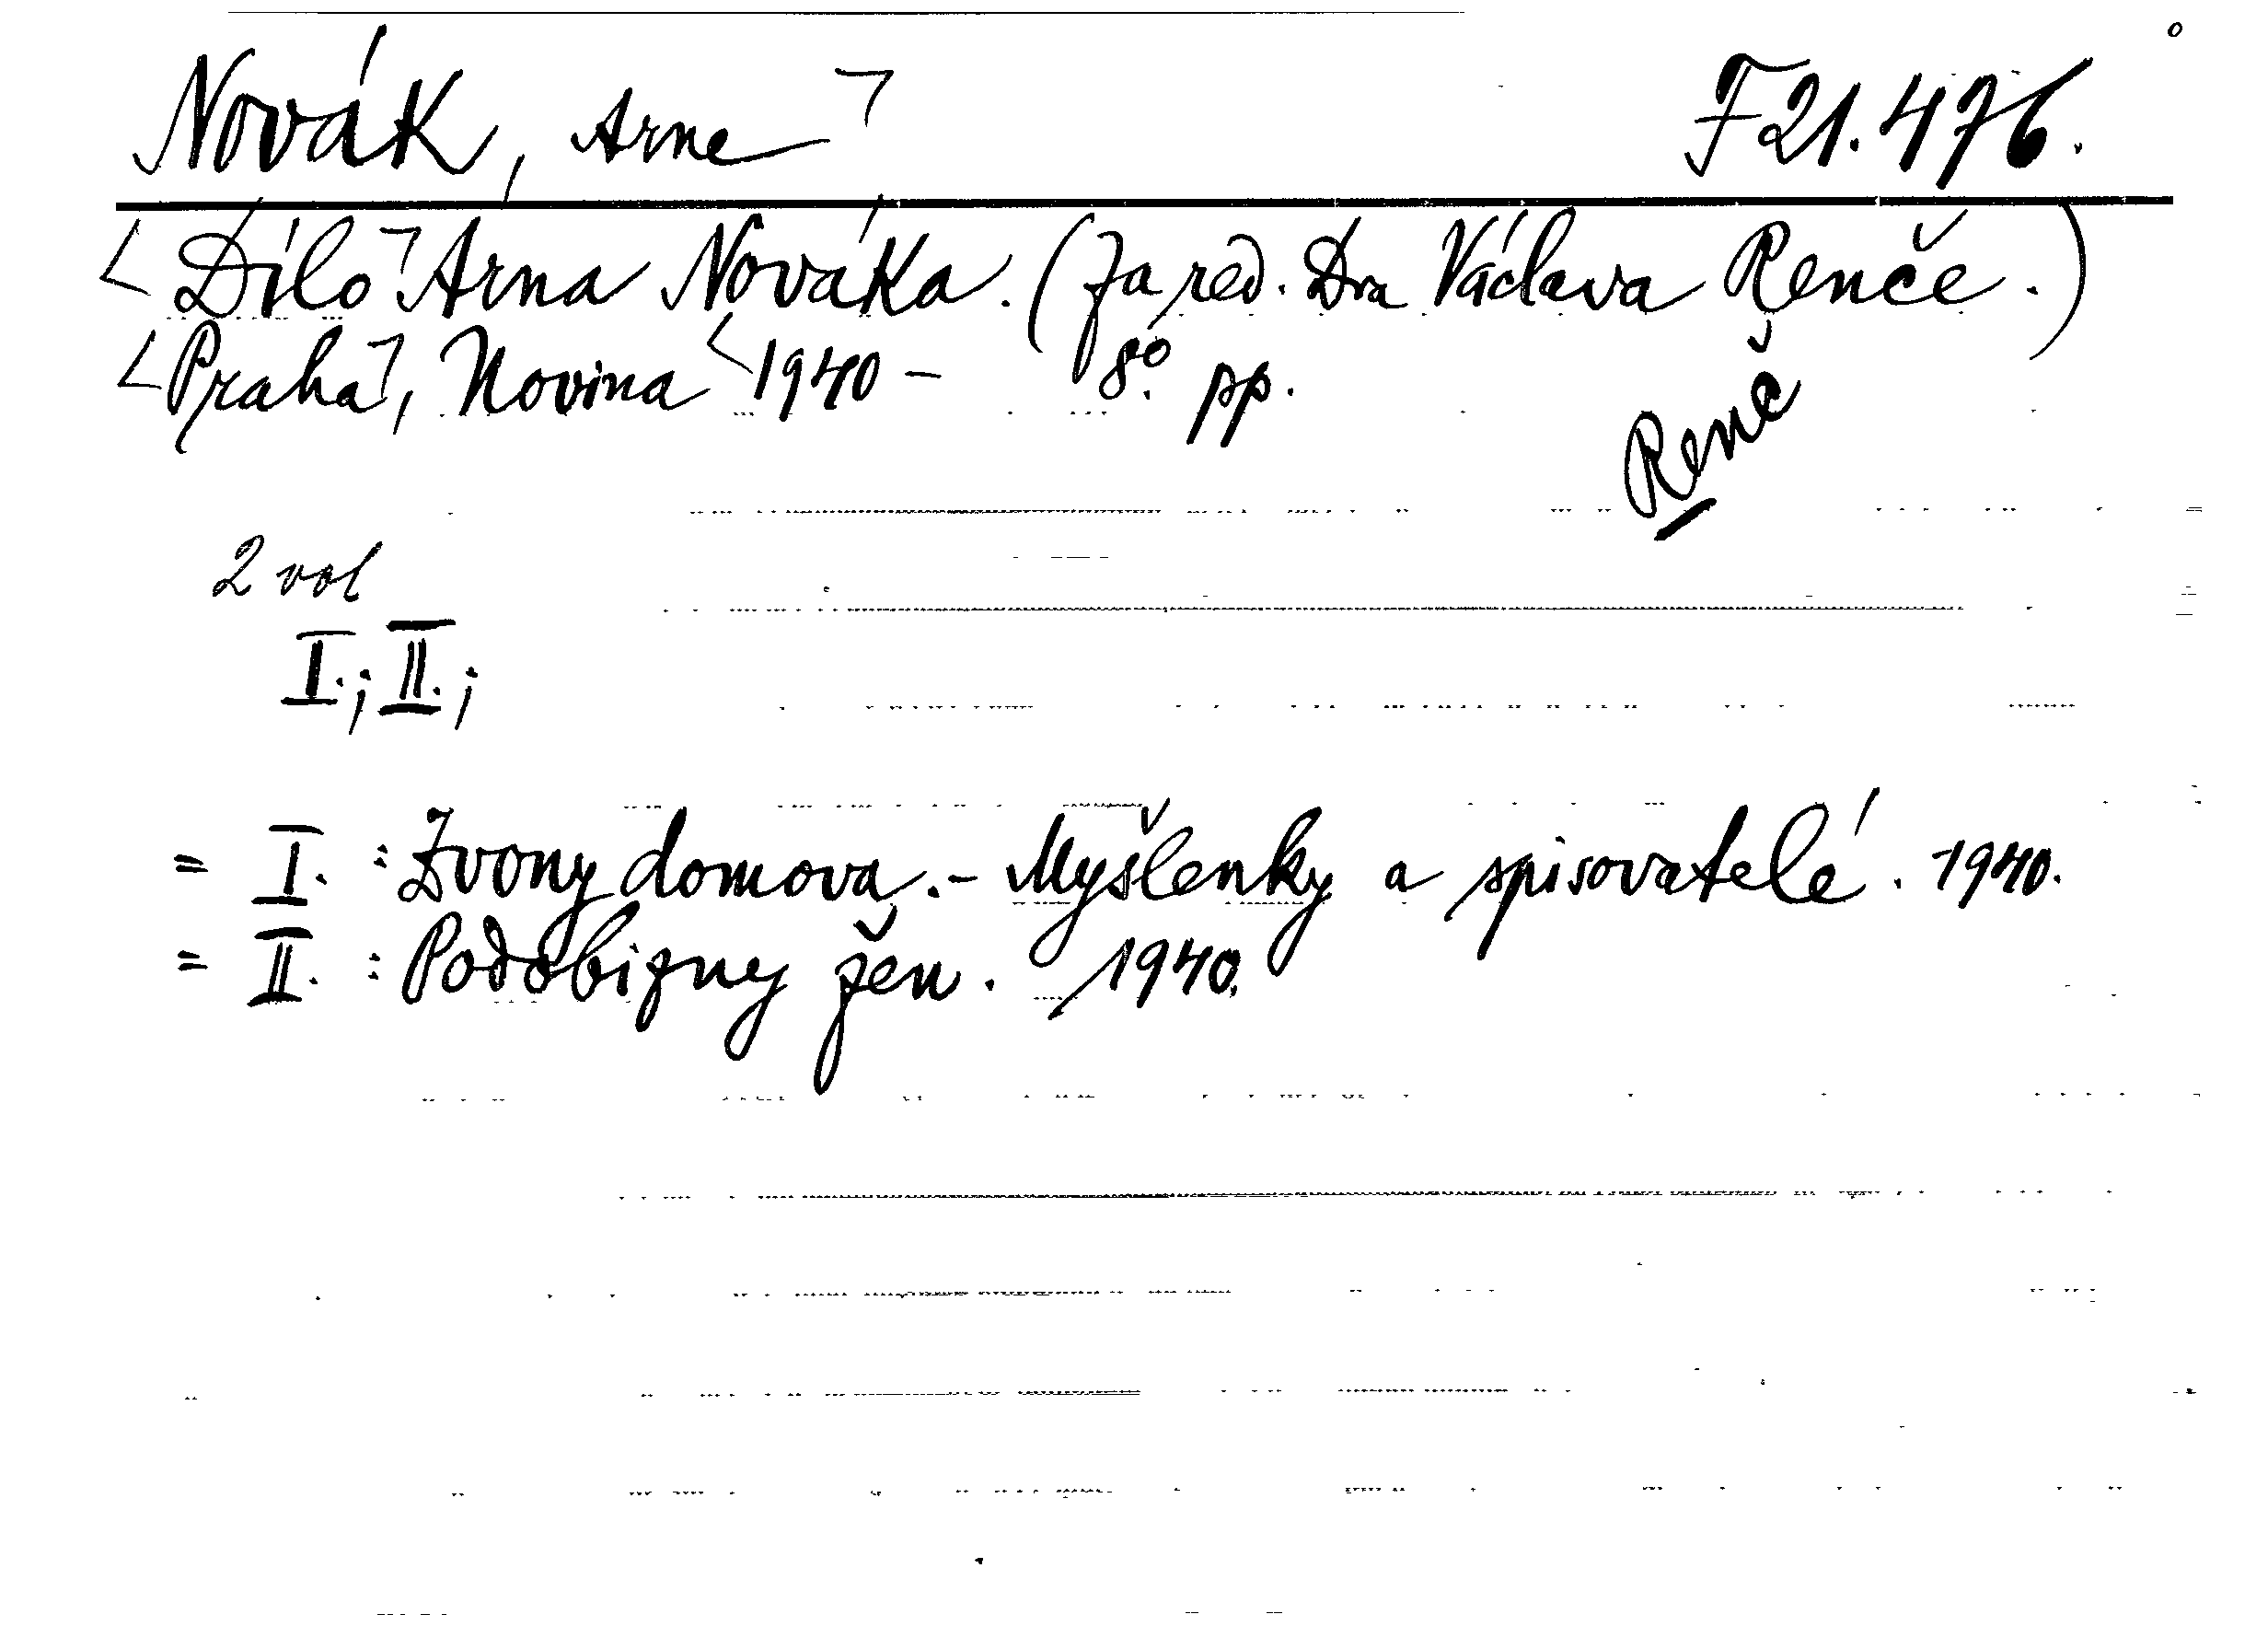 Novák, Arne F 21.476.
Dílo Arna Nováka. (Za red. Dra Václava Renče.)
Praha, Novina 1940- 8°. pp.
Renč
2 vol
I.; II.;
= I. : Zvony domova.- Myšlenky a spisovatelé. 1940.
= II. : Podobizny žen. 1940.